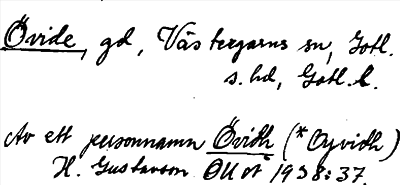 Övide, gd, Västergarns sn, Gotl.
s. hd, Gotl. l.
Av ett personnamn Övidh (*Oyvidh)
H. Gustavson ÖLLOT 1938:37.